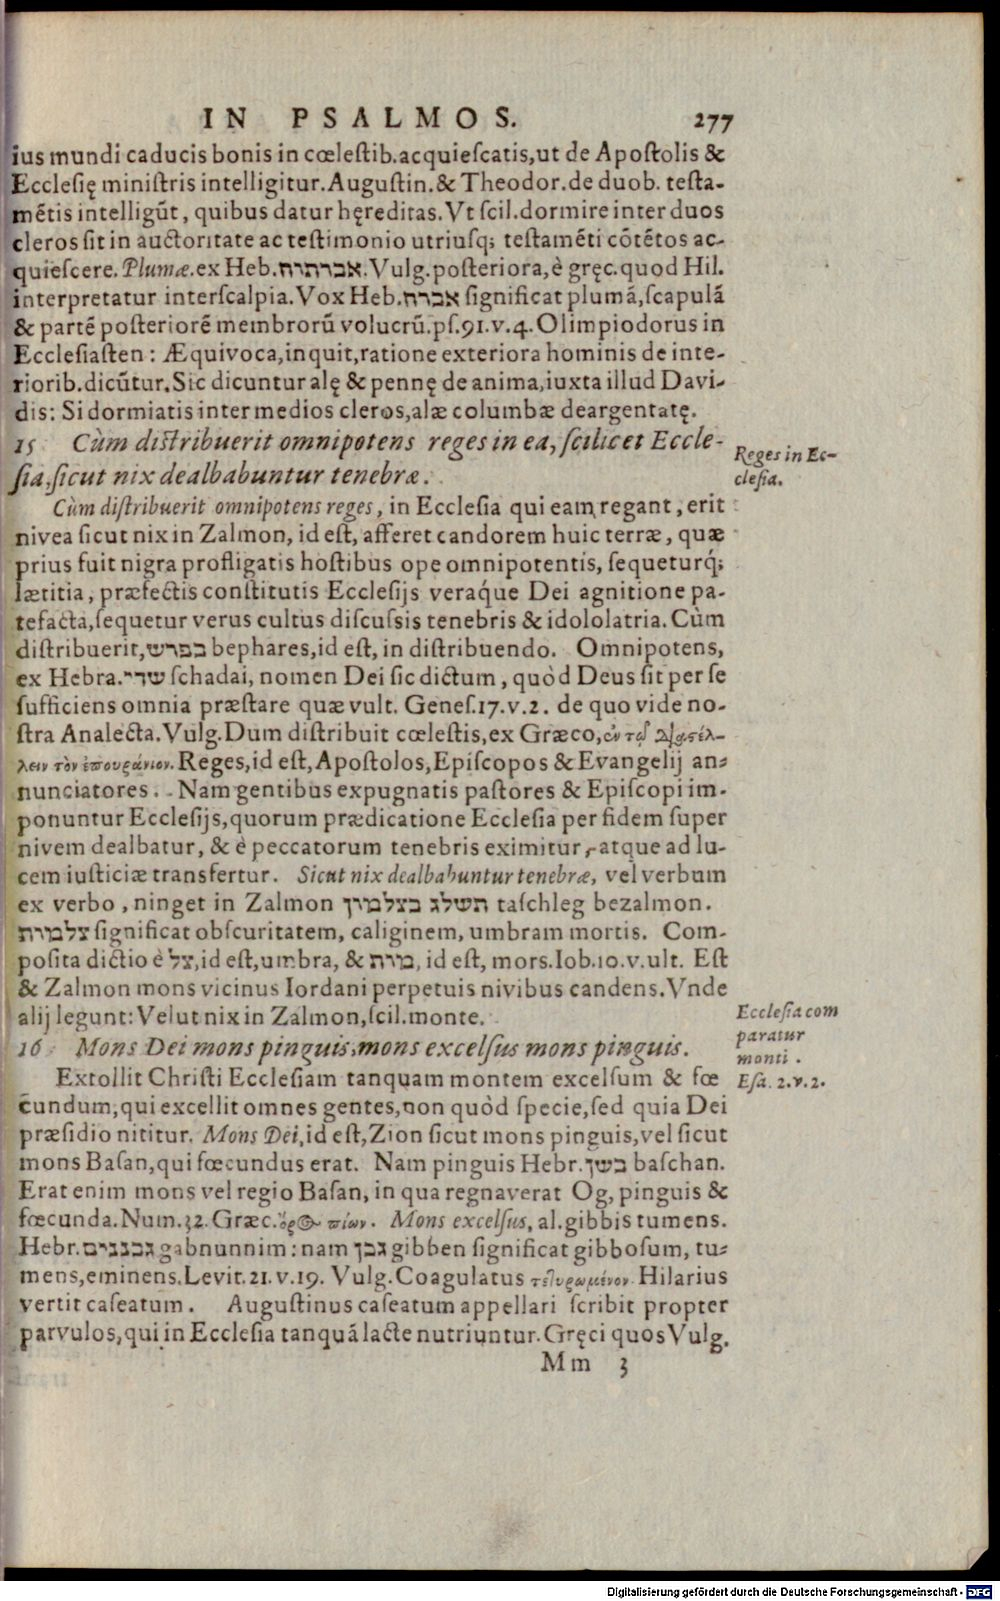 IN PSALMOS. 277
ius mundi caducis bonis in cœleſtib. acquieſcatis, ut de Apoſtolis &
Eccleſię miniſtris intelligitur. Auguſtin. & Theodor. de duob. teſta-
mētis intelligūt, quibus datur hęreditas. Vt ſcil. dormire inter duos
cleros ſit in auctoritate ac teſtimonio utriuſq; teſtamēti cōtētos ac-
quieſcere. Plumæ. ex Heb. אברתיה. Vulg. poſteriora, è gręc. quod Hil.
interpretatur interſcalpia. Vox Heb. אברה ſignificat plumā, ſcapulā
& partē poſteriorē membrorū volucrū. pſ. 91. v. 4. Olimpiodorus in
Eccleſiaſten: Æquivoca, inquit, ratione exteriora hominis de inte-
riorib. dicūtur. Sic dicuntur alę & pennę de anima, iuxta illud Davi-
dis: Si dormiatis inter medios cleros, alæ columbæ deargentatę.
15 Cùm diſtribuerit omnipotens reges in ea, ſcilicet Eccle-
ſia, ſicut nix dealbabuntur tenebræ.
Reges in Ec-
cleſia.
Cùm diſtribuerit omnipotens reges, in Eccleſia qui eam regant, erit
nivea ſicut nix in Zalmon, id eſt, afferet candorem huic terræ, quæ
prius fuit nigra profligatis hoſtibus ope omnipotentis, ſequeturq́;
lætitia, præfectis conſtitutis Eccleſijs veraq́ue Dei agnitione pa-
tefacta, ſequetur verus cultus diſcuſsis tenebris & idololatria. Cùm
diſtribuerit, בפרש bephares, id eſt, in diſtribuendo. Omnipotens,
ex Hebra. שדי ſchadai, nomen Dei ſic dictum, quòd Deus ſit per ſe
ſufficiens omnia præſtare quæ vult. Geneſ. 17. v. 2. de quo vide no-
ſtra Analecta. Vulg. Dum diſtribuit cœleſtis, ex Græco, ἐν τῷ διαστέλ-
λειν τὸν ἐπουράνιον. Reges, id eſt, Apoſtolos, Epiſcopos & Evangelij an-
nunciatores. Nam gentibus expugnatis paſtores & Epiſcopi im-
ponuntur Eccleſijs, quorum prædicatione Eccleſia per fidem ſuper
nivem dealbatur, & è peccatorum tenebris eximitur, atque ad lu-
cem iuſticiæ transfertur. Sicut nix dealbabuntur tenebræ, vel verbum
ex verbo, ninget in Zalmon תשלג בצלמון taſchleg bezalmon.
צלמות ſignificat obſcuritatem, caliginem, umbram mortis. Com-
poſita dictio è צל, id eſt, umbra, & מות, id eſt, mors. Iob. 10. v. ult. Eſt
& Zalmon mons vicinus Iordani perpetuis nivibus candens. Vnde
alij legunt: Velut nix in Zalmon, ſcil. monte.
16 Mons Dei mons pinguis, mons excelſus mons pinguis.
Eccleſia com
paratur
monti.
Eſa. 2. v. 2.
Extollit Chriſti Eccleſiam tanquam montem excelſum & fœ
cundum, qui excellit omnes gentes, non quòd ſpecie, ſed quia Dei
præſidio nititur. Mons Dei, id eſt, Zion ſicut mons pinguis, vel ſicut
mons Baſan, qui fœcundus erat. Nam pinguis Hebr. בשן baſchan.
Erat enim mons vel regio Baſan, in qua regnaverat Og, pinguis &
fœcunda. Num. 32. Græc. ὄρος πίων. Mons excelſus, al. gibbis tumens.
Hebr. גבננים gabnunnim: nam גבן gibben ſignificat gibboſum, tu-
mens, eminens. Levit. 21. v. 19. Vulg. Coagulatus τετυρωμένον. Hilarius
vertit caſeatum. Auguſtinus caſeatum appellari ſcribit propter
parvulos, qui in Eccleſia tanquā lacte nutriuntur. Gręci quos Vulg.
Mm 3
Digitalisierung gefördert durch die Deutsche Forschungsgemeinschaft - DFG